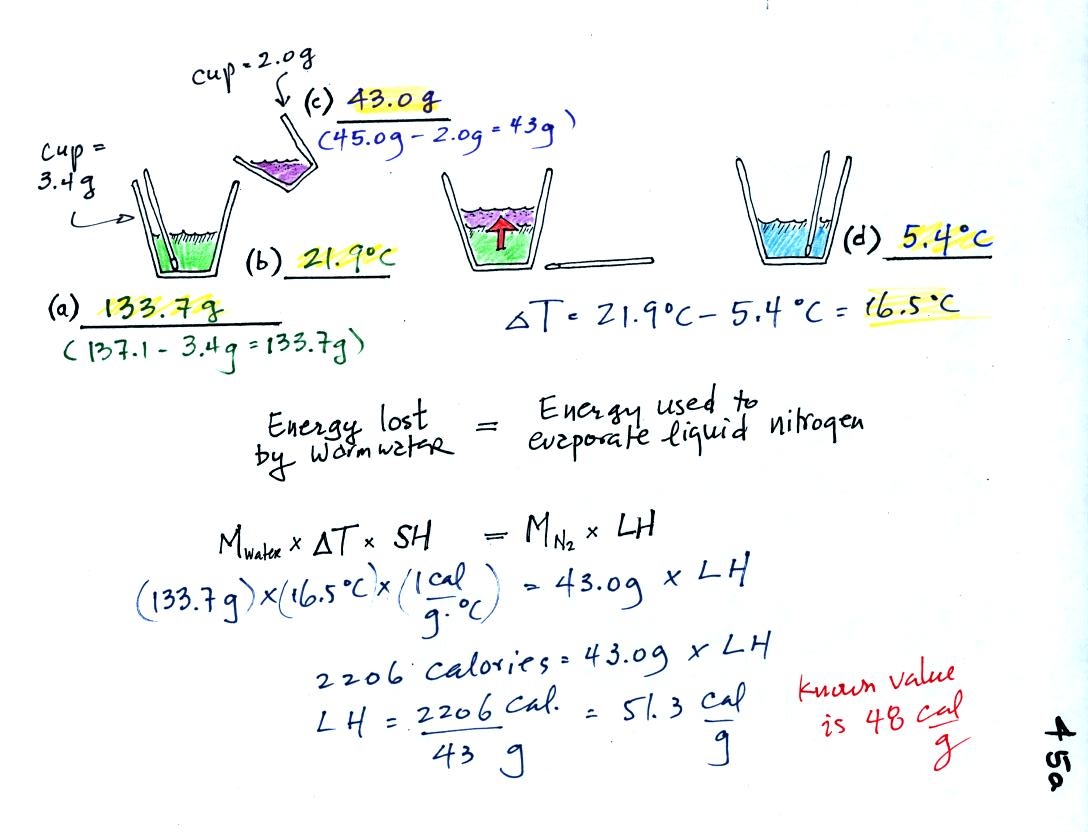 cup = 2.0g
(c) 43.0 g
(45.0g - 2.0g = 43g)
cup =
3.4g
(b) 21.9°C
(d) 5.4°C
(a) 133.7g
(137.1 - 3.4g = 133.7g)
ΔT = 21.9°C - 5.4°C = 16.5°C
Energy lost by warm water = Energy used to evaporate liquid nitrogen
Mwater x ΔT x SH = MN2 x LH
(133.7g) x (16.5°C) x (1 cal / g·°C) = 43.0g x LH
2206 calories = 43.0g x LH
LH = 2206 cal. / 43 g = 51.3 cal / g
known value
is 48 cal / g
45a